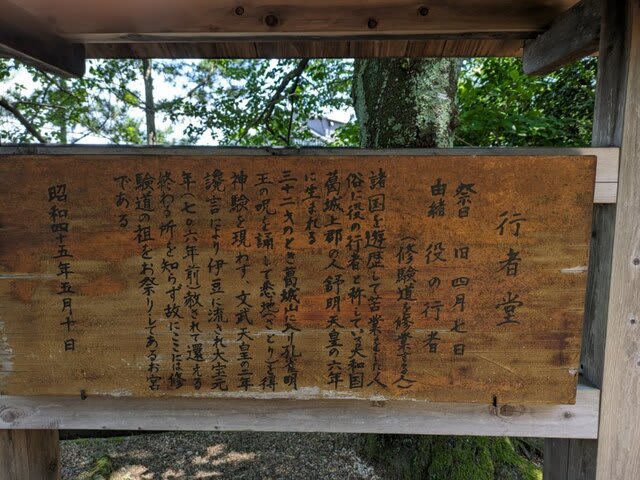 行者堂
祭日 旧四月七日
由緒 役の行者
(修験道を修業する人)
諸国を遊歴して苦業をした人
俗に役の行者と称している大和国
葛城上郡の人舒明天皇の六年
に生まれる
三十二才のとき葛城山に入り孔雀明
王の呪を誦して悉地さとりを得
神験を現わす、文武天皇の二年
讒言により伊豆に流され大宝元
年(七〇六年前)赦されて還える
終わる所を知らず故にここには修
験道の祖をお祭りしてあるお宮
である
昭和四十五年五月十日